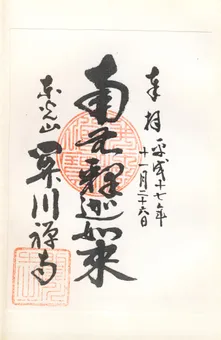 奉拝
平成十七年
十一月二十六日
南無釈迦如来
東光山
栗川禅寺